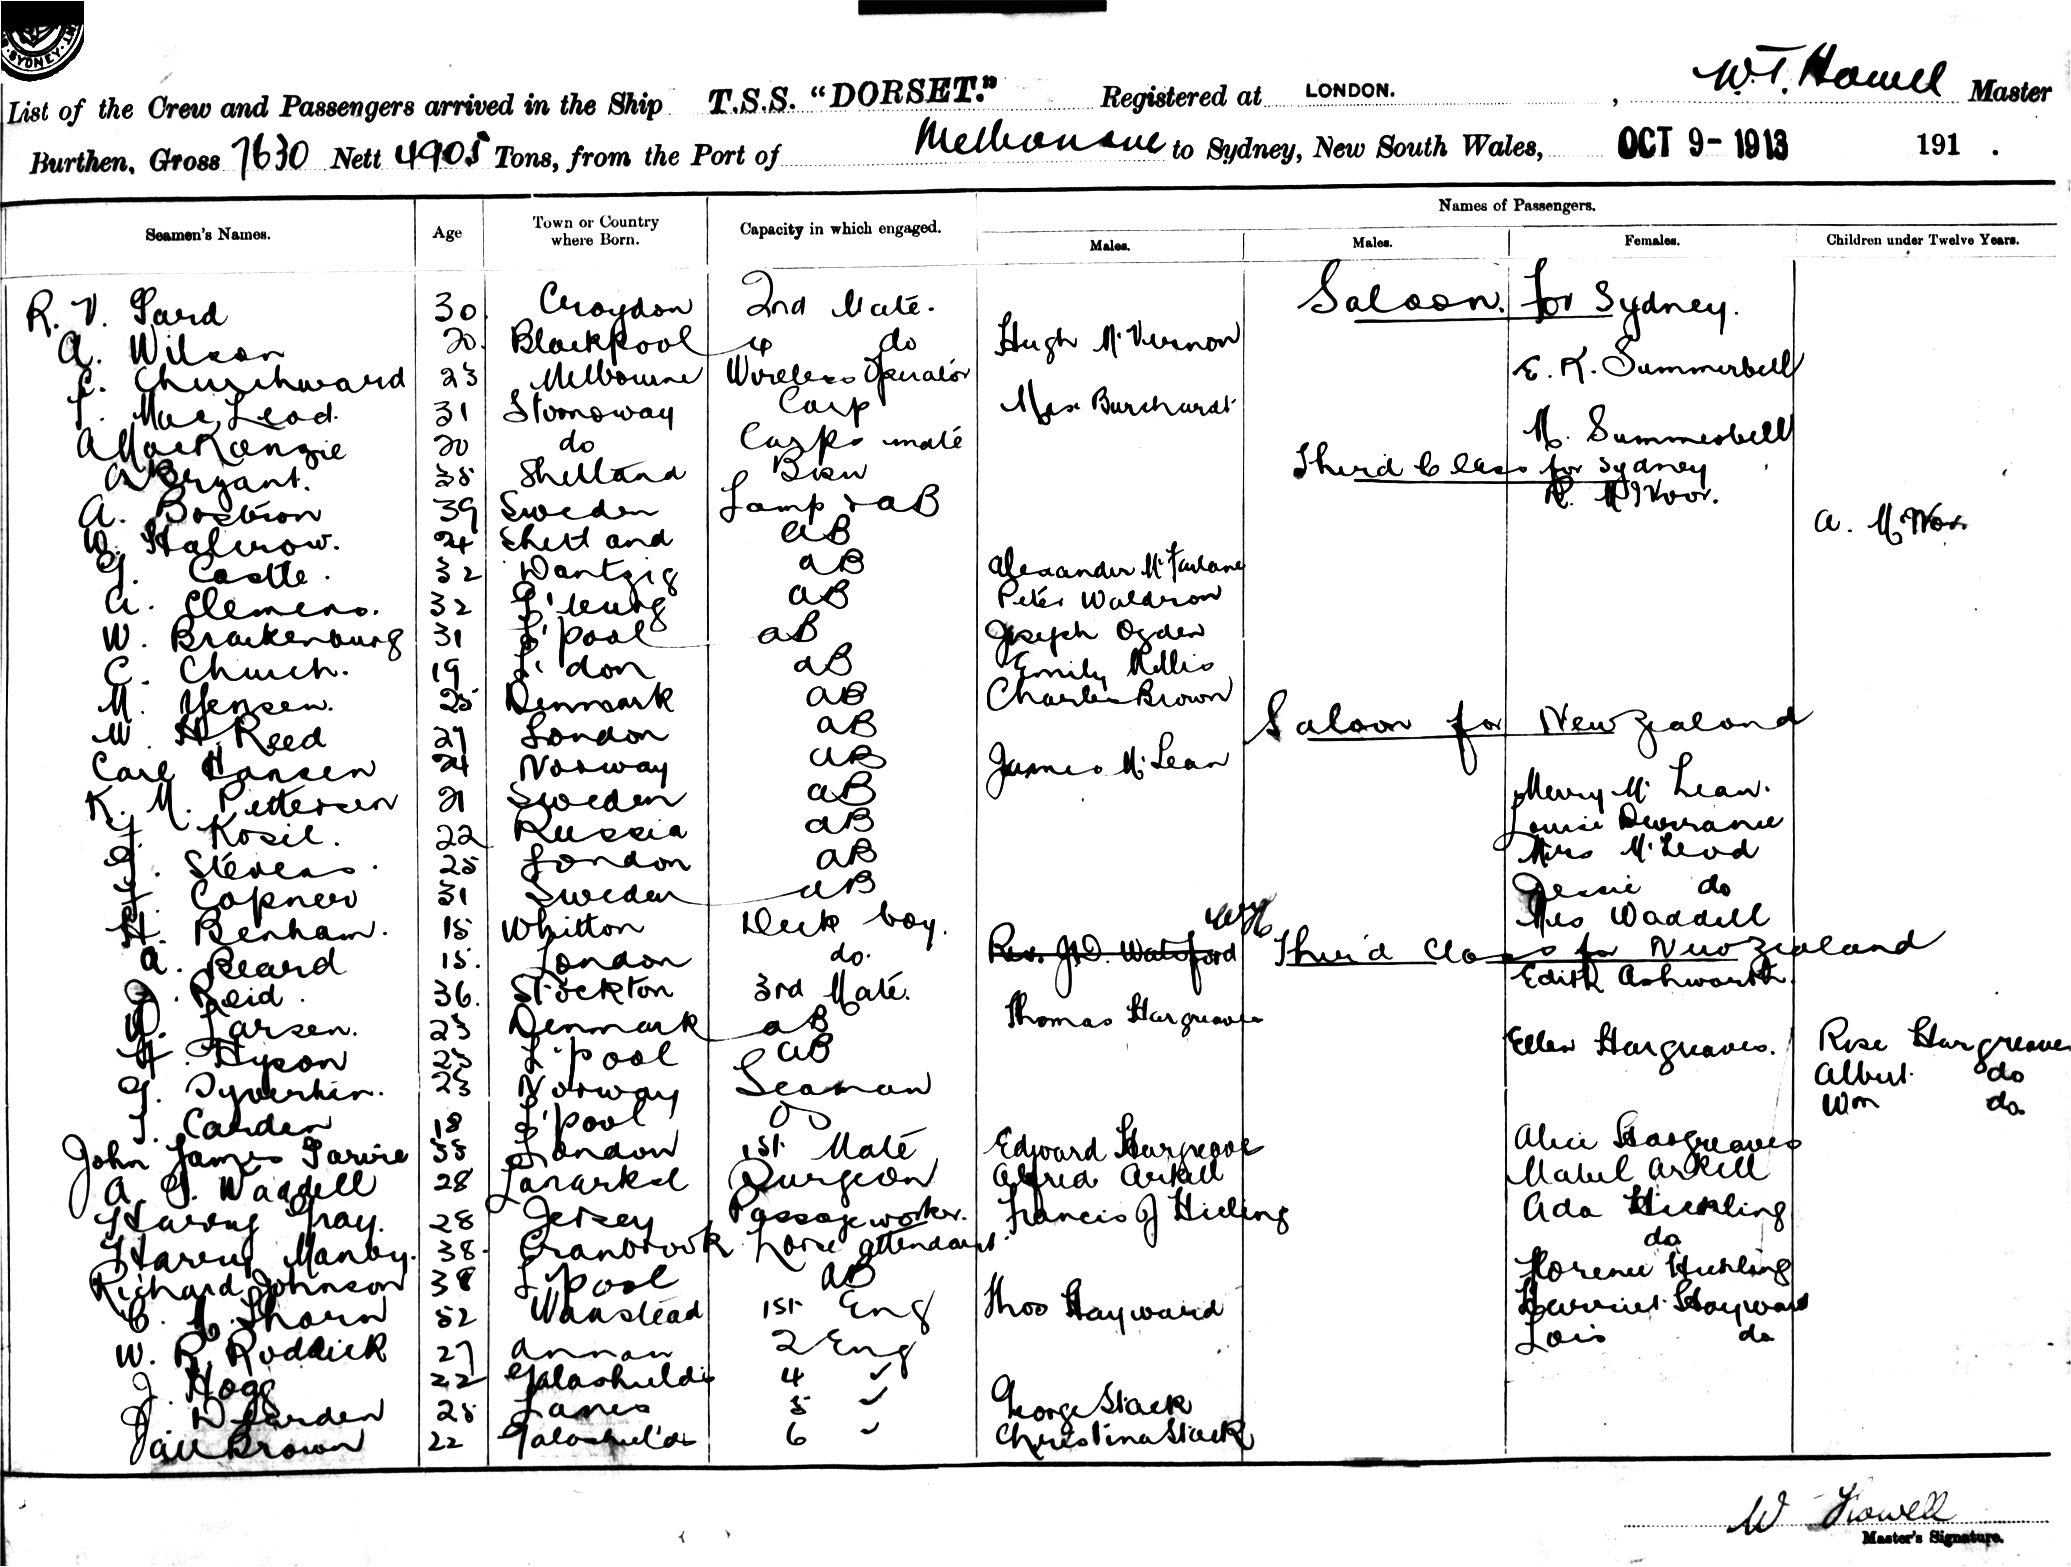 SYDNEY
W. T. Howell Master
List of the Crew and Passengers arrived in the Ship T.S.S. "DORSET." Registered at LONDON. ,
Burthen, Gross 7630 Nett 4905 Tons, from the Port of Melbourne to Sydney, New South Wales, OCT 9 - 1913 191 .
Names of Passengers.
Seamen's Names. Age Town or Country where Born. Capacity in which engaged. Males. Males. Females. Children under Twelve Years.
Saloon for Sydney.
R. V. 30 Croydon 2nd Mate.
A. Wilson 20 Blackpool 4 do Hugh McVernon
C. Churchward 23 Melbourne Wireless Operator E. K. Summerbell
MacLeod. 31 Stornoway Carp Max Burchardt
A MacKenzie 20 do Carps mate M. Summerbell
A Bryant. 38 Shetland Bsn Third Class for Sydney
A. Bostron 39 Sweden Lamp & AB
W. Halcrow. 24 Shetland AB
G. Castle. 32 Dantzig AB Alexander McFarlane
A. Clemens. 32 AB Peter Waldron
W. Brackenburg 31 L'pool AB Joseph Ogden
C. Church. 19 L'don AB Emily
M. Yensen. 25 Denmark AB Charles Brown
W. H. Reed 27 London AB Saloon for New Zealand
Carl Hansen 24 Norway AB James McLean
K. M. Pettersen 21 Sweden AB Merry McLean.
J. Kosil. 22 Russia AB Louise Durrance
G. Stevens. 25 London AB Mrs McLeod
F. Copner 31 Sweden AB Jessie do
H. Benham. 15 Whitton Deck boy. Mrs Waddell
A. Beard 15. London do. Rev. J. D. Watsford Third Class for New Zealand
J. Reid. 36. Stockton 3rd Mate. Edith Ashworth.
Larsen. 23 Denmark AB Thomas Hargreaves
H. Hyson 25 L'pool AB Ellen Hargreaves. Rose Hargreaves
G. 23 Norway Seaman Albert do
T. Carden 18 L'pool OS Wm do
John James 35 London 1st Mate Edward Hargreave Alice Hargreaves
A. G. Waddell 28 Lanarksh Surgeon Alfred Arkell Mabel Arkell
Harvey Gray. 28 Jersey Passage worker. Francis J Hickling Ada Hickling
Harvey Manby. 38. Cranbrook Horse attendant. do
Richard Johnson 38 L'pool AB Florence Hickling
C. A. Thorn 52 Wanstead 1st Eng Thos Hayward Harriet Hayward
W. R. Roddick 27 Annan 2 Eng Lois do
J. Hogg 22 Galashields 4 ✓
J. Warden 25 Lancs 5 ✓ George Stack
Brown 22 Galashields 6 ✓ Christina Stack
W Howell
Master's Signature.